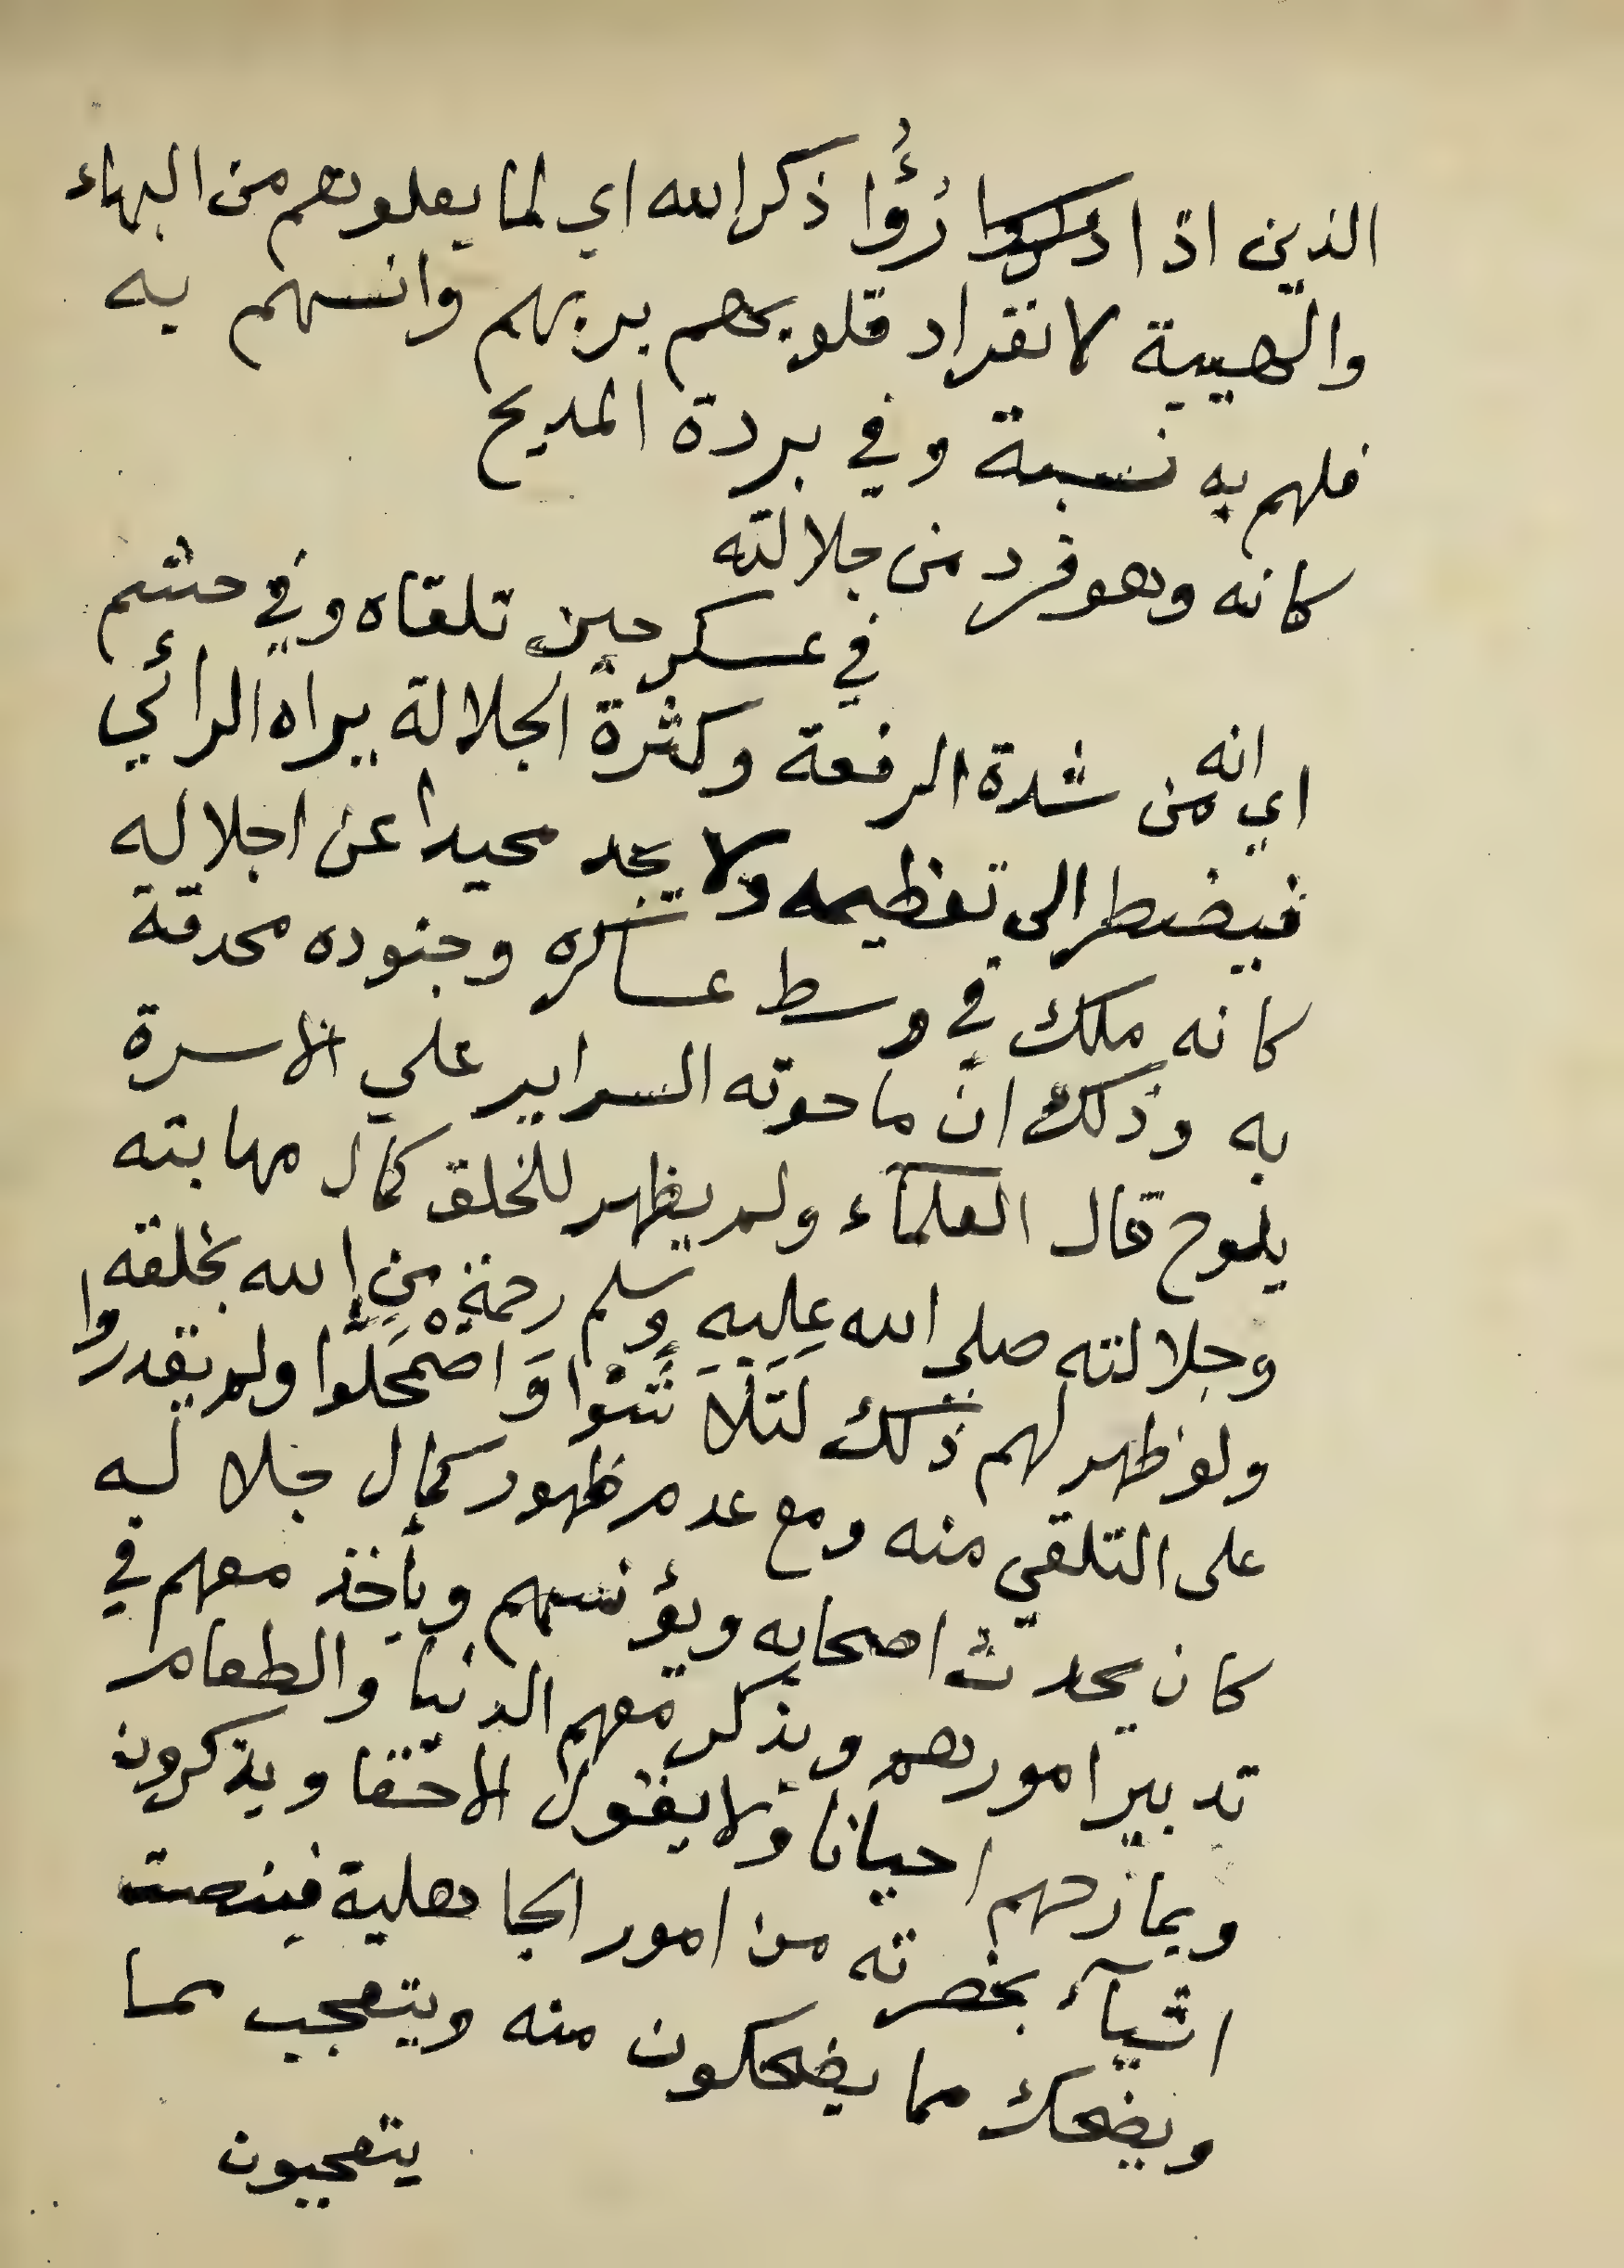 الذين اذا رُؤُوا ذكر الله اي لما يعلوهم من البهاء
والهيبة لانفراد قلوبهم بربهم وانسهم به
فلهم به نسبة وفي بردة المديح
كانه وهو فرد من جلالته
في عسكر حين تلقاه وفي حشم
اي انه من شدة الرفعة وكثرة الجلالة يراه الرائي
فيضطر الى تعظيمه ولا يجد محيدا عن اجلاله
كانه ملك في وسط عساكره وجنوده محدقة
به وذلك ان ما حوته السراير علي الاسرة
يلوح قال العلماء ولم يظهر للخلق كمال مهابته
وجلالته صلى الله عليه وسلم رحمة من الله بخلقه
ولو ظهر لهم ذلك لتلاشَوْا وَاضْمَحَلّوا ولم يقدروا
على التلقي منه ومع عدم ظهور كمال جلاله
كان يحدث اصحابه ويؤنسهم ويأخذ معهم في
تدبير امورهم ويذكر معهم الدنيا والطعام
ويمازحهم احيانا ولا يقول الا حقا ويذكرون
اشيآء بحضرته من امور الجاهلية فينصت
ويضحك مما يضحكون منه ويتعجب مما
يتعجبون